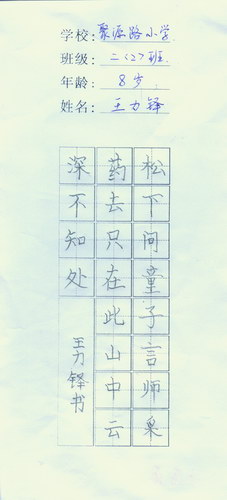 学校：聚源路小学
班级：二（2）班
年龄：8岁
姓名：王力铎
松下问童子言师采
药去只在此山中云
深不知处
王力铎书